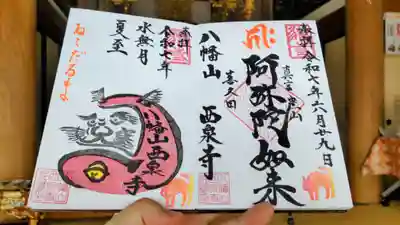 奉拝 令和七年六月廿九日
真言宗
阿弥陀如来
喜久田
八幡山 西泉寺
奉拝 令和七年
水無月
夏至
ねこだるま
八幡山西泉寺